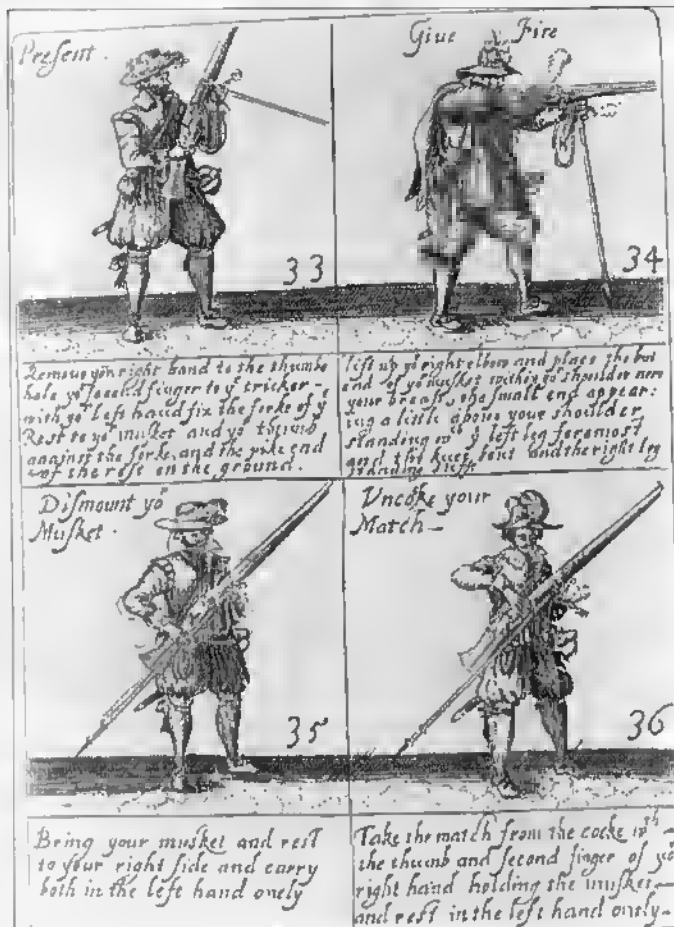 Present.
33
Remove yor right hand to the thumbe
hole yor second finger to ye tricker -
with yor left hand fix the forke of ye
Rest to yor musket and yor thumb
against the forke, and the pike end
of the rest on the ground.
Giue Fire
34
lift up yor right elbow and place the but
end of yor musket within yor shoulder nere
your breast, the small end appear:
ing a little aboue your shoulder
standing wth ye left leg foremost
and the knee bent and the right leg
standing stiffe
Dismount yor
Musket.
35
Bring your musket and rest
to your right side and carry
both in the left hand onely
Uncoke your
Match -
36
Take the match from the cocke wth -
the thumb and second finger of yor
right hand holding the musket -
and rest in the left hand onely -